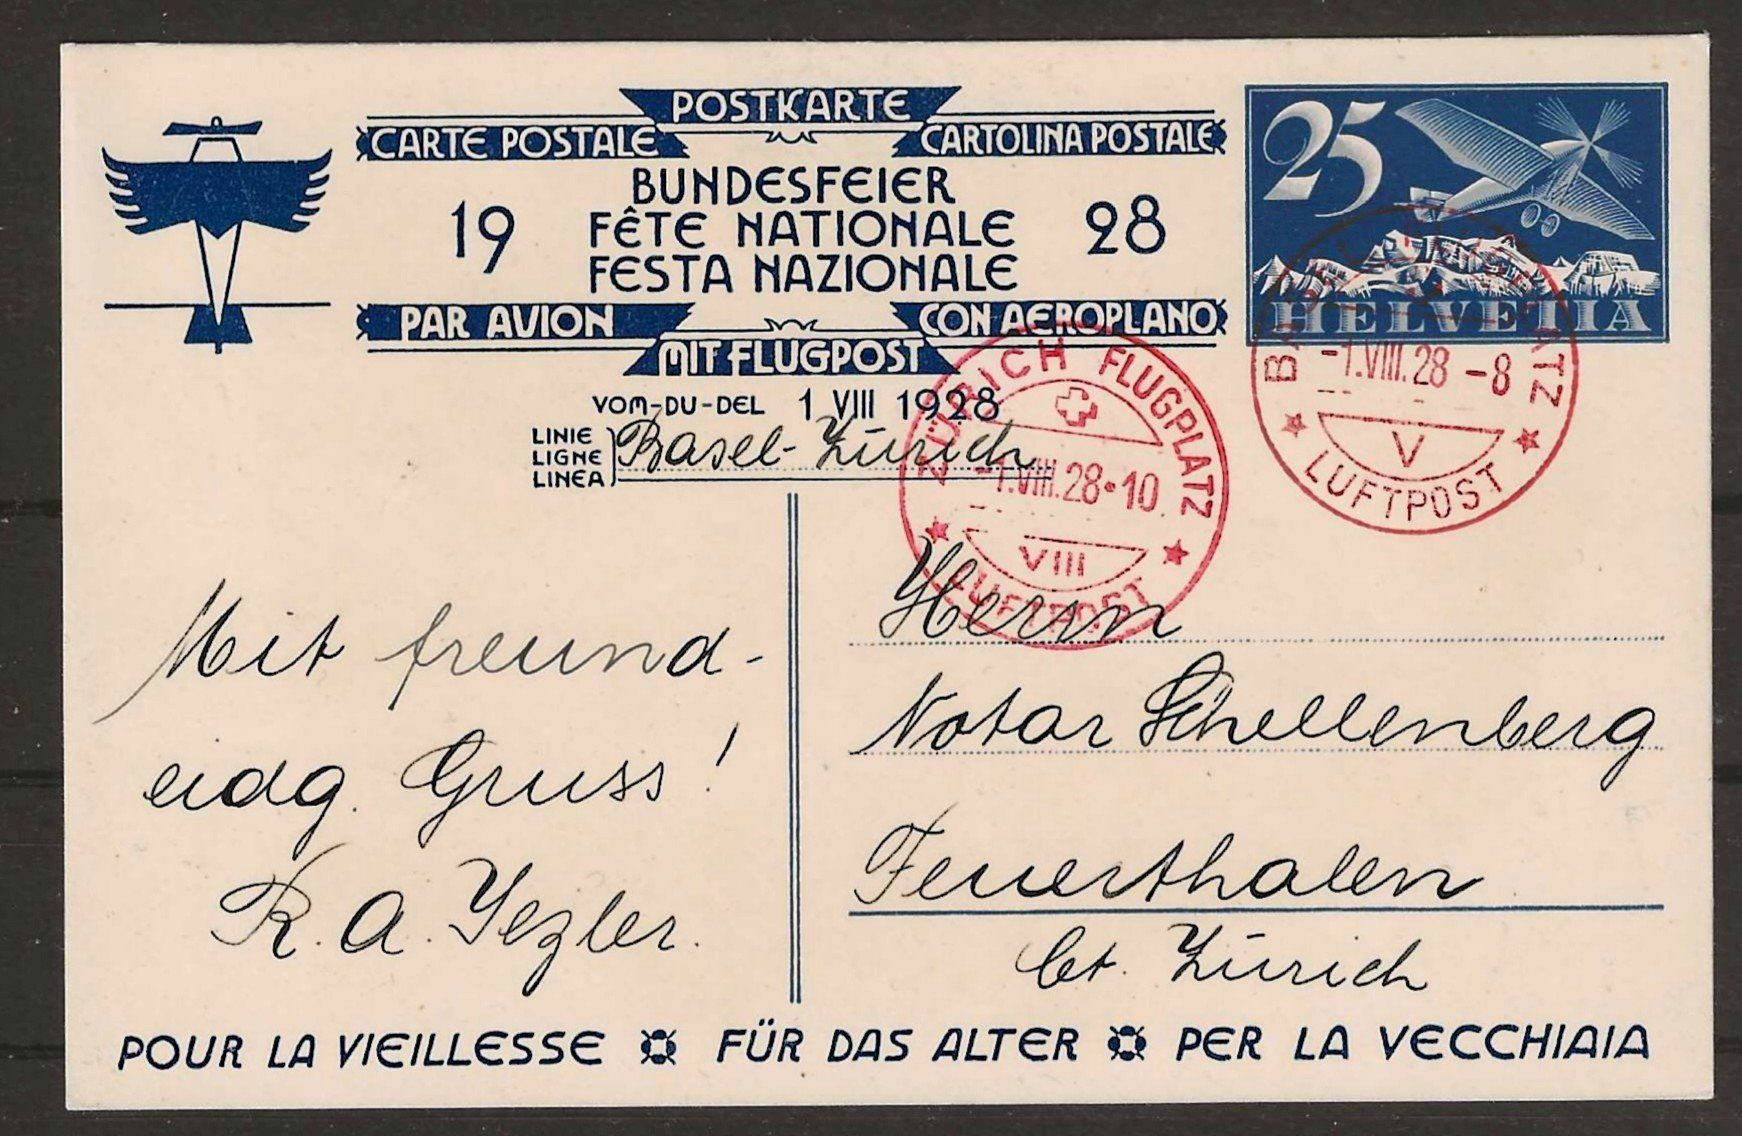 POSTKARTE
CARTE POSTALE CARTOLINA POSTALE
BUNDESFEIER
19 FÊTE NATIONALE 28
FESTA NAZIONALE
PAR AVION CON AEROPLANO
MIT FLUGPOST
VOM-DU-DEL 1 VIII 1928
LINIE
LIGNE
LINEA
Basel-Zürich
25
HELVETIA
-1.VIII.28 -8
V
LUFTPOST
ZÜRICH FLUGPLATZ
-1.VIII.28•10
VIII
LUFTPOST
Mit freund-
eidg. Gruss!
R. A. Yezler.
Herrn
Notar Schellenberg
Feuerthalen
Ct. Zürich
POUR LA VIEILLESSE FÜR DAS ALTER PER LA VECCHIAIA